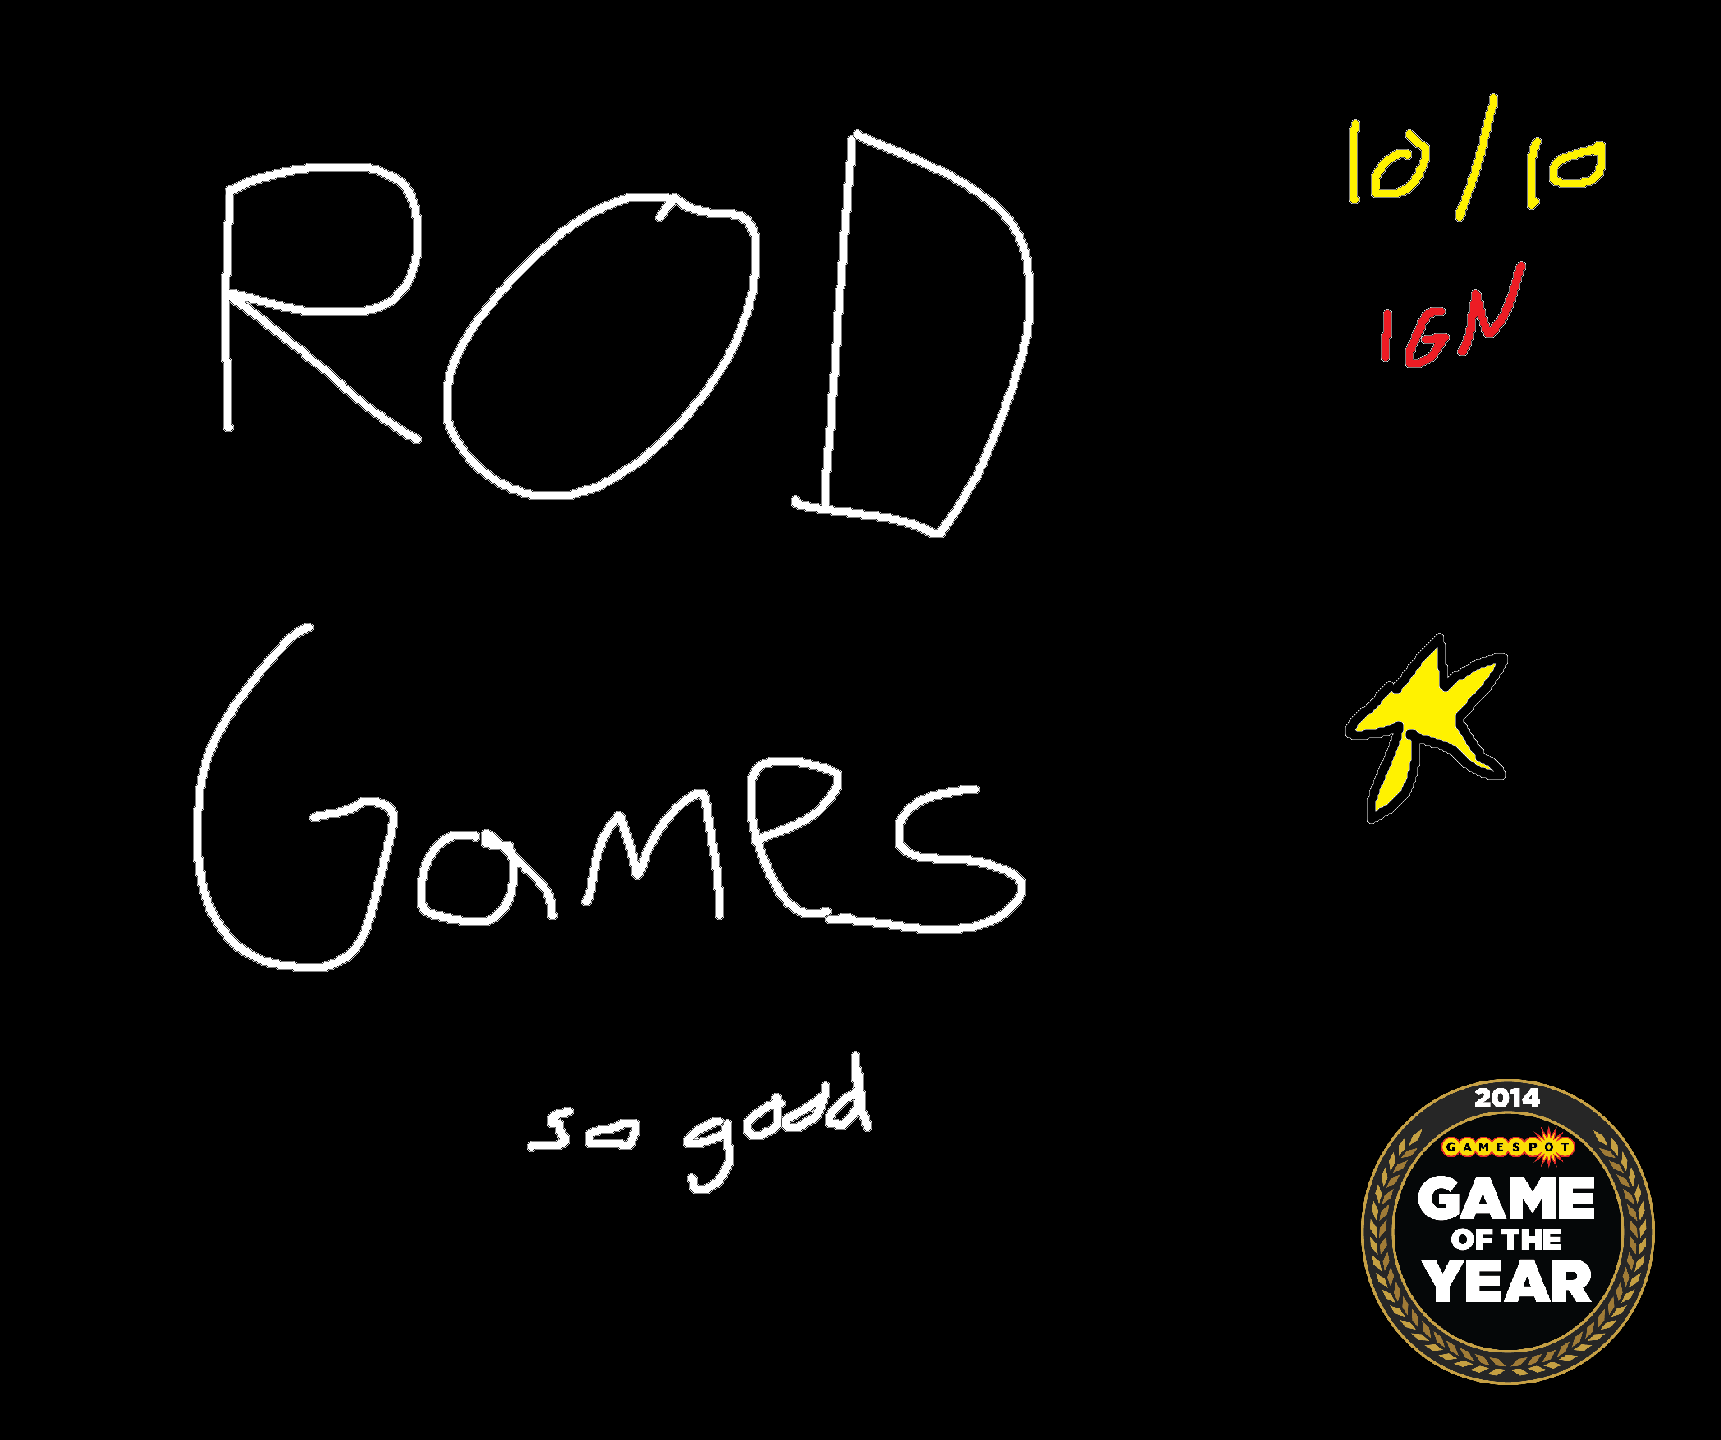 ROD
Games
so good
10/10
IGN
2014
GAMESPOT
GAME
OF THE
YEAR